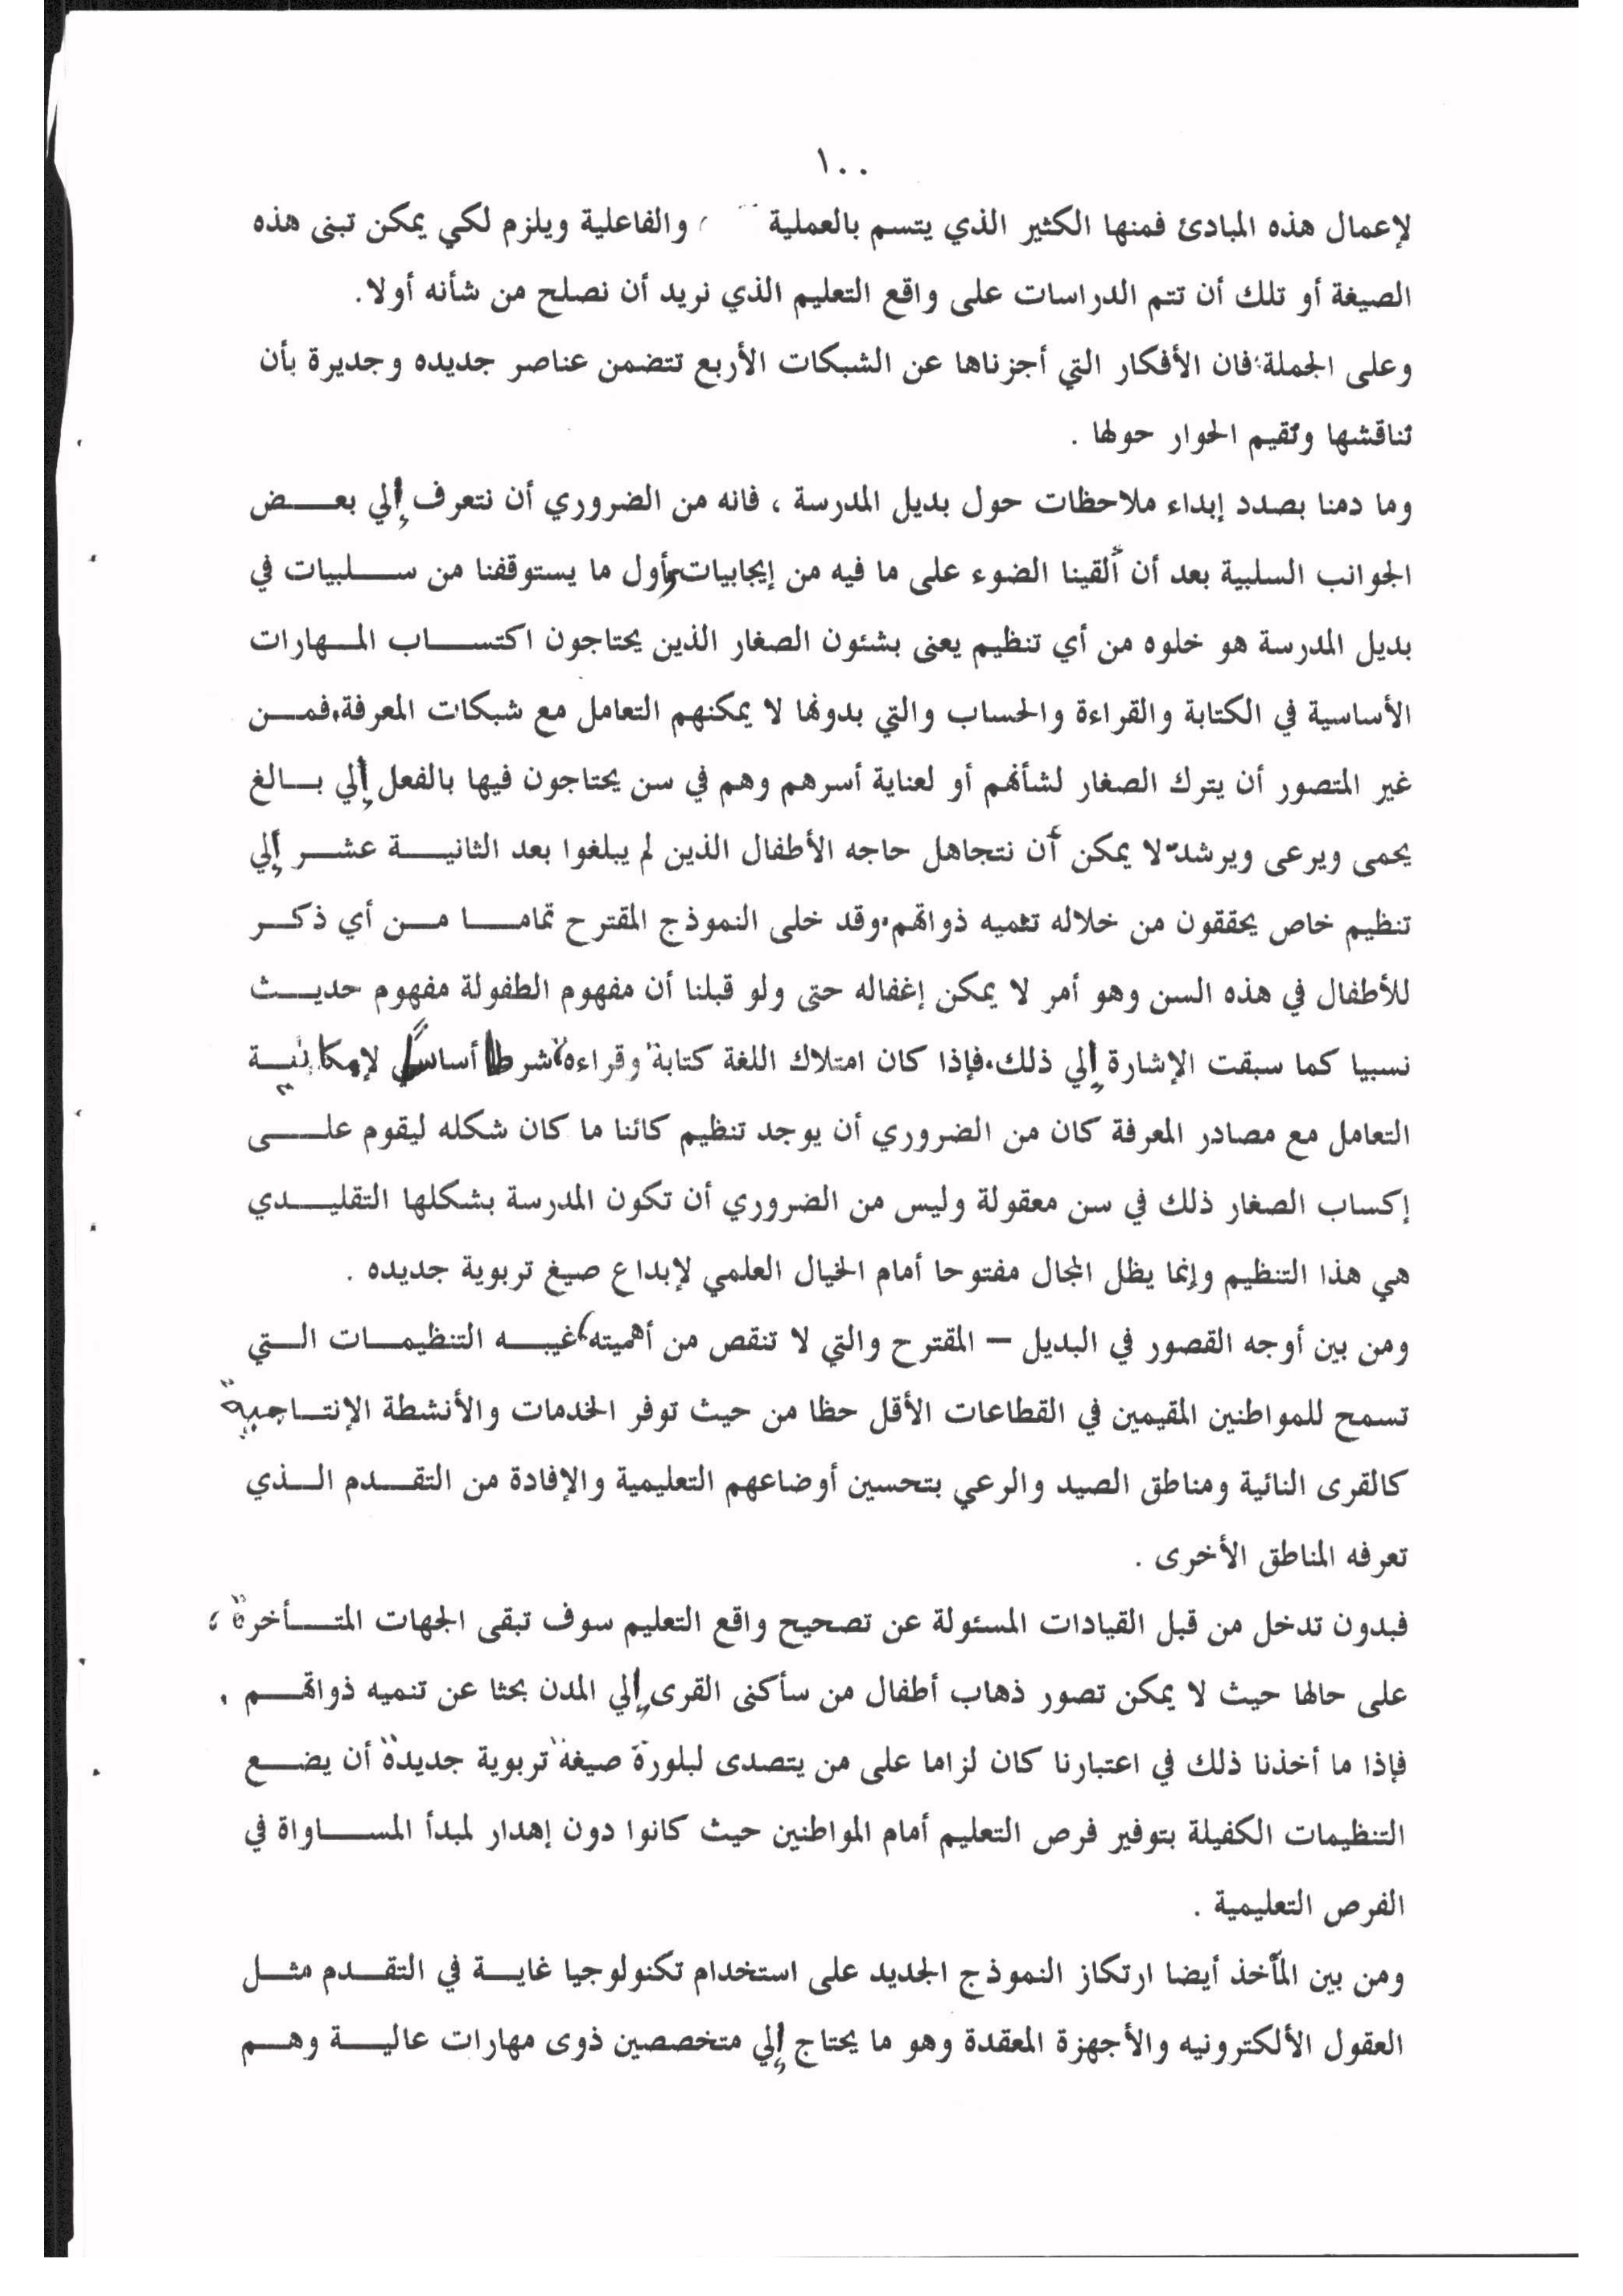 ١٠٠
لإعمال هذه المبادئ فمنها الكثير الذي يتسم بالعملية والفاعلية ويلزم لكي يمكن تبنى هذه
الصيغة أو تلك أن تتم الدراسات على واقع التعليم الذي نريد أن نصلح من شأنه أولا.
وعلى الجملة؛ فان الأفكار التي أجزناها عن الشبكات الأربع تتضمن عناصر جديده وجديرة بأن
نناقشها ونقيم الحوار حولها .
وما دمنا بصدد إبداء ملاحظات حول بديل المدرسة ، فانه من الضروري أن نتعرف إلي بعض
الجوانب السلبية بعد أن ألقينا الضوء على ما فيه من إيجابيات وأول ما يستوقفنا من سلبيات في
بديل المدرسة هو خلوه من أي تنظيم يعنى بشئون الصغار الذين يحتاجون اكتساب المهارات
الأساسية في الكتابة والقراءة والحساب والتي بدونها لا يمكنهم التعامل مع شبكات المعرفة. فمن
غير المتصور أن يترك الصغار لشأنهم أو لعناية أسرهم وهم في سن يحتاجون فيها بالفعل إلي بالغ
يحمى ويرعى ويرشد لا يمكن أن نتجاهل حاجه الأطفال الذين لم يبلغوا بعد الثانية عشر إلي
تنظيم خاص يحققون من خلاله تنميه ذواتهم. وقد خلى النموذج المقترح تماما من أي ذكر
للأطفال في هذه السن وهو أمر لا يمكن إغفاله حتى ولو قبلنا أن مفهوم الطفولة مفهوم حديث
نسبيا كما سبقت الإشارة إلي ذلك. فإذا كان امتلاك اللغة كتابة وقراءة شرطا أساسيًا لإمكانية
التعامل مع مصادر المعرفة كان من الضروري أن يوجد تنظيم كائنا ما كان شكله ليقوم على
إكساب الصغار ذلك في سن معقولة وليس من الضروري أن تكون المدرسة بشكلها التقليدي
هي هذا التنظيم وإنما يظل المجال مفتوحا أمام الخيال العلمي لإبداع صيغ تربوية جديده .
ومن بين أوجه القصور في البديل – المقترح والتي لا تنقص من أهميته، غيبه التنظيمات التي
تسمح للمواطنين المقيمين في القطاعات الأقل حظا من حيث توفر الخدمات والأنشطة الإنتاجية
كالقرى النائية ومناطق الصيد والرعي بتحسين أوضاعهم التعليمية والإفادة من التقدم الذي
تعرفه المناطق الأخرى .
فبدون تدخل من قبل القيادات المسئولة عن تصحيح واقع التعليم سوف تبقى الجهات المتأخرة ؛
على حالها حيث لا يمكن تصور ذهاب أطفال من سأكنى القرى إلي المدن بحثا عن تنميه ذواتهم .
فإذا ما أخذنا ذلك في اعتبارنا كان لزاما على من يتصدى لبلورة صيغة تربوية جديدة أن يضع
التنظيمات الكفيلة بتوفير فرص التعليم أمام المواطنين حيث كانوا دون إهدار لمبدأ المساواة في
الفرص التعليمية .
ومن بين المآخذ أيضا ارتكاز النموذج الجديد على استخدام تكنولوجيا غاية في التقدم مثل
العقول الألكترونيه والأجهزة المعقدة وهو ما يحتاج إلي متخصصين ذوى مهارات عالية وهم